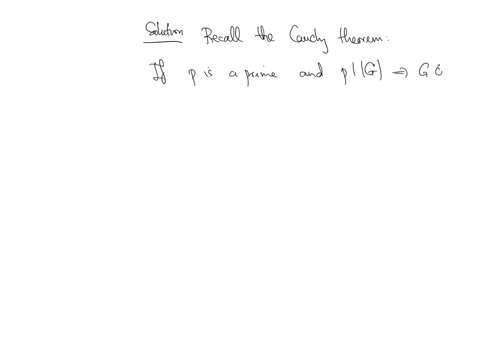 Solution Recall the Cauchy theorem:
If p is a prime and p||G| ⇒ G